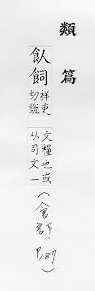 類篇
飤飼祥吏切說文糧也或从司文一(食部,P.187)